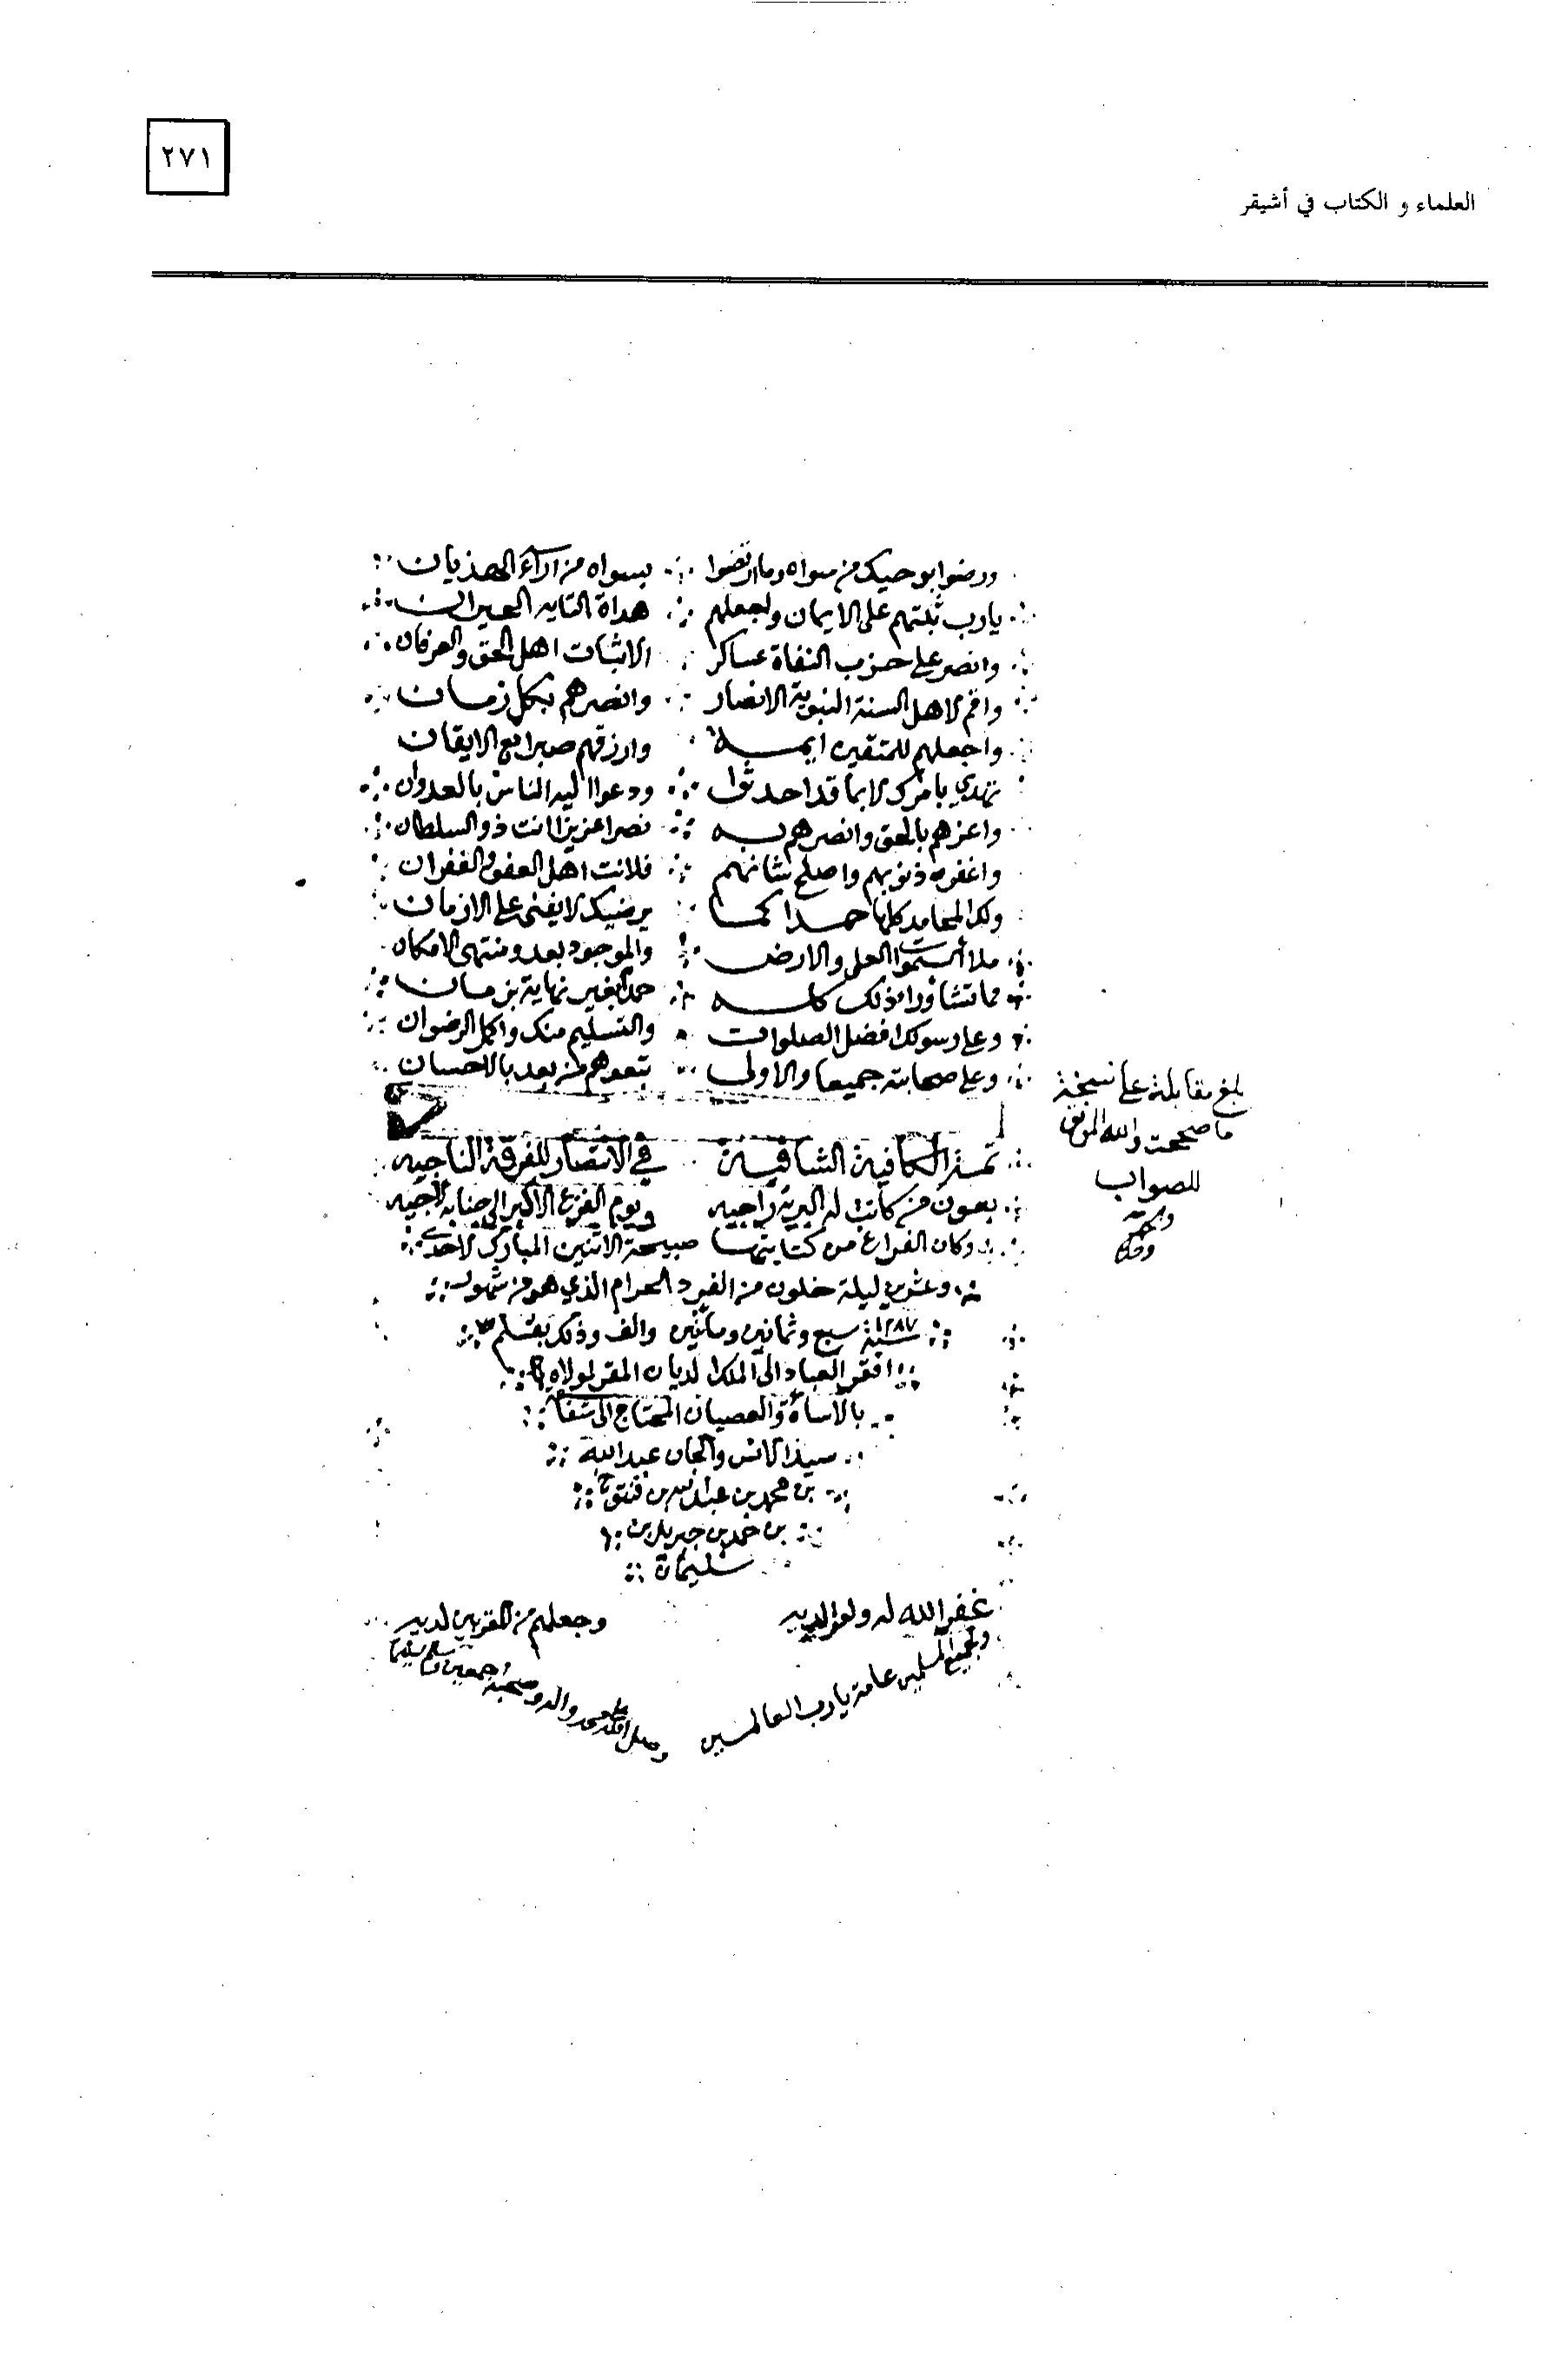 ٢٧١
العلماء و الكتاب في أشيقر
ورضوا بوحيك من سواه وما ارتضوا بسواه من اراء الهذيان
يارب ثبتهم على الايمان واجعلهم هداة التايه الحيران
وانصر على حزب النفاة عساكر الاثبات اهل الحق والعرفان
واقم لاهل السنة النبوية الانصار وانصرهم بكل زمان
واجعلهم للمتقين ايمة وارزقهم صبرا مع الايقان
تهدي بامرك لا بما قد احدثوا ودعوا اليه الناس بالعدوان
واعزهم بالحق وانصرهم به نصرا عزيزا انت ذو السلطان
واغفر ذنوبهم واصلح شانهم فلانت اهل العفو والغفران
ولك المحامد كلها حمدا كما يرضيك لا يفنى على الازمان
ملا السموات العلى والارض والموجود بعد ومنتهى الامكان
مما تشا وراء ذلك كله حمدا بغير نهاية بزمان
وعلى رسولك افضل الصلوات والتسليم منك واكمل الرضوان
وعلى صحابته جميعا والاولى تبعوهم من بعد بالاحسان
بلغ مقابلة على نسخة
ما صححت والله الموفق
للصواب
تمت الكافية الشافية في الانتصار للفرقة الناجيه
بعون من كانت له البرية راجيه ويوم الفزع الاكبر الى جنابه لاجيه
وكان الفراغ من كتابتها صبيحة الاثنين المبارك لاحدى
وعشرين ليلة خلون من الفرد الحرام الذي هو من شهور
سنة ١٢٨٧ سبع وثمانين ومأتين والف وذلك بقلم
افقر العباد الى الملك الديان المقر لمولاه
بالاساة والعصيان المحتاج الى شفاعة
سيد الانس والجان عبد الله
بن محمد بن عبد الله بن فنتوخ
بن حمد بن جبر بن
سليمان
غفر الله له ولوالديه وجعلهم من المقربين لديه
ولجميع المسلمين عامة يارب العالمين
وصلى الله على محمد واله وصحبه اجمعين وسلم تسليما